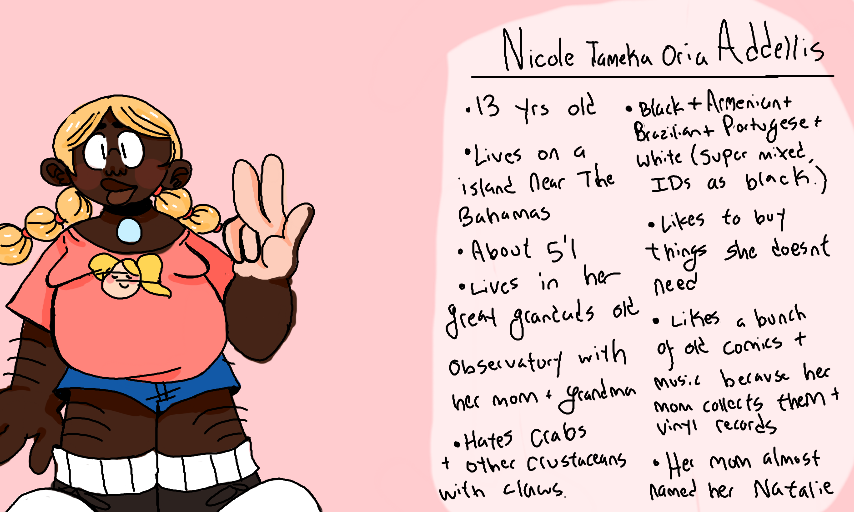 Nicole Tameka Oria Addellis
• 13 yrs old
• Lives on a
island Near The
Bahamas
• About 5'1
• Lives in her
great grandads old
observatory with
her mom + grandma
• Hates Crabs
+ other crustaceans
with claws.
• Black + Armenian +
Brazilian + Portugese +
white (super mixed,
IDs as black.)
• Likes to buy
things she doesnt
need
• Likes a bunch
of old comics +
music because her
mom collects them +
vinyl records
• Her mom almost
named her Natalie